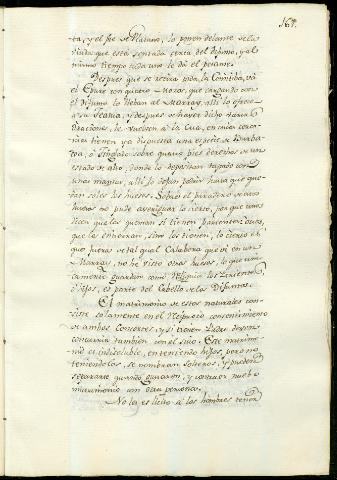 167.
ta, y el pie de Platano, lo ponen delante de la
viuda que está sentada cerca del difunto, y al
mismo tiempo cada uno le dá el pesame.
Despues que se acaba toda la Comida, vá
el Epure con quatro Mozos, que cargando con
el difunto lo llevan al Marray, alli lo ofrece
a su Teatua, y despues de haver dicho varias
Oraciones, le vuelven á la Casa, en cuias cerca-
nias tienen ya dispuesta una especie de Barba-
coa, ó Tinglado sobre quatro pies derechos de un
estado de alto, donde lo depositan tapado con
unas mantas, alli lo dejan podrir hasta que que-
dan solos los huesos. Sobre el paradero de estos
huesos no pude averiguar lo cierto, por que unos
dicen que los queman si tienen parientes: otros,
que los entierran, sino los tienen, lo cierto es
que fuera de tal qual Calabera que vi en un
Marray, no he visto otros huesos, lo que uni-
camente guardan como Reliquia los Parientes,
é hijos, es parte del Cabello de los Difuntos.
El matrimonio de estos naturales con-
siste solamente en el Reciproco consentimiento
de ambos Consortes, y si tienen Padres deven
concurrir tambien con el suio. Este matrimo-
nio es indisoluble, en teniendo hijos, pero no
teniendolos, se nombran solteros, y pueden
separarse quando gustaren, y contraer nuebo
matrimonio con otra persona.
No les es licito á los hombres tener